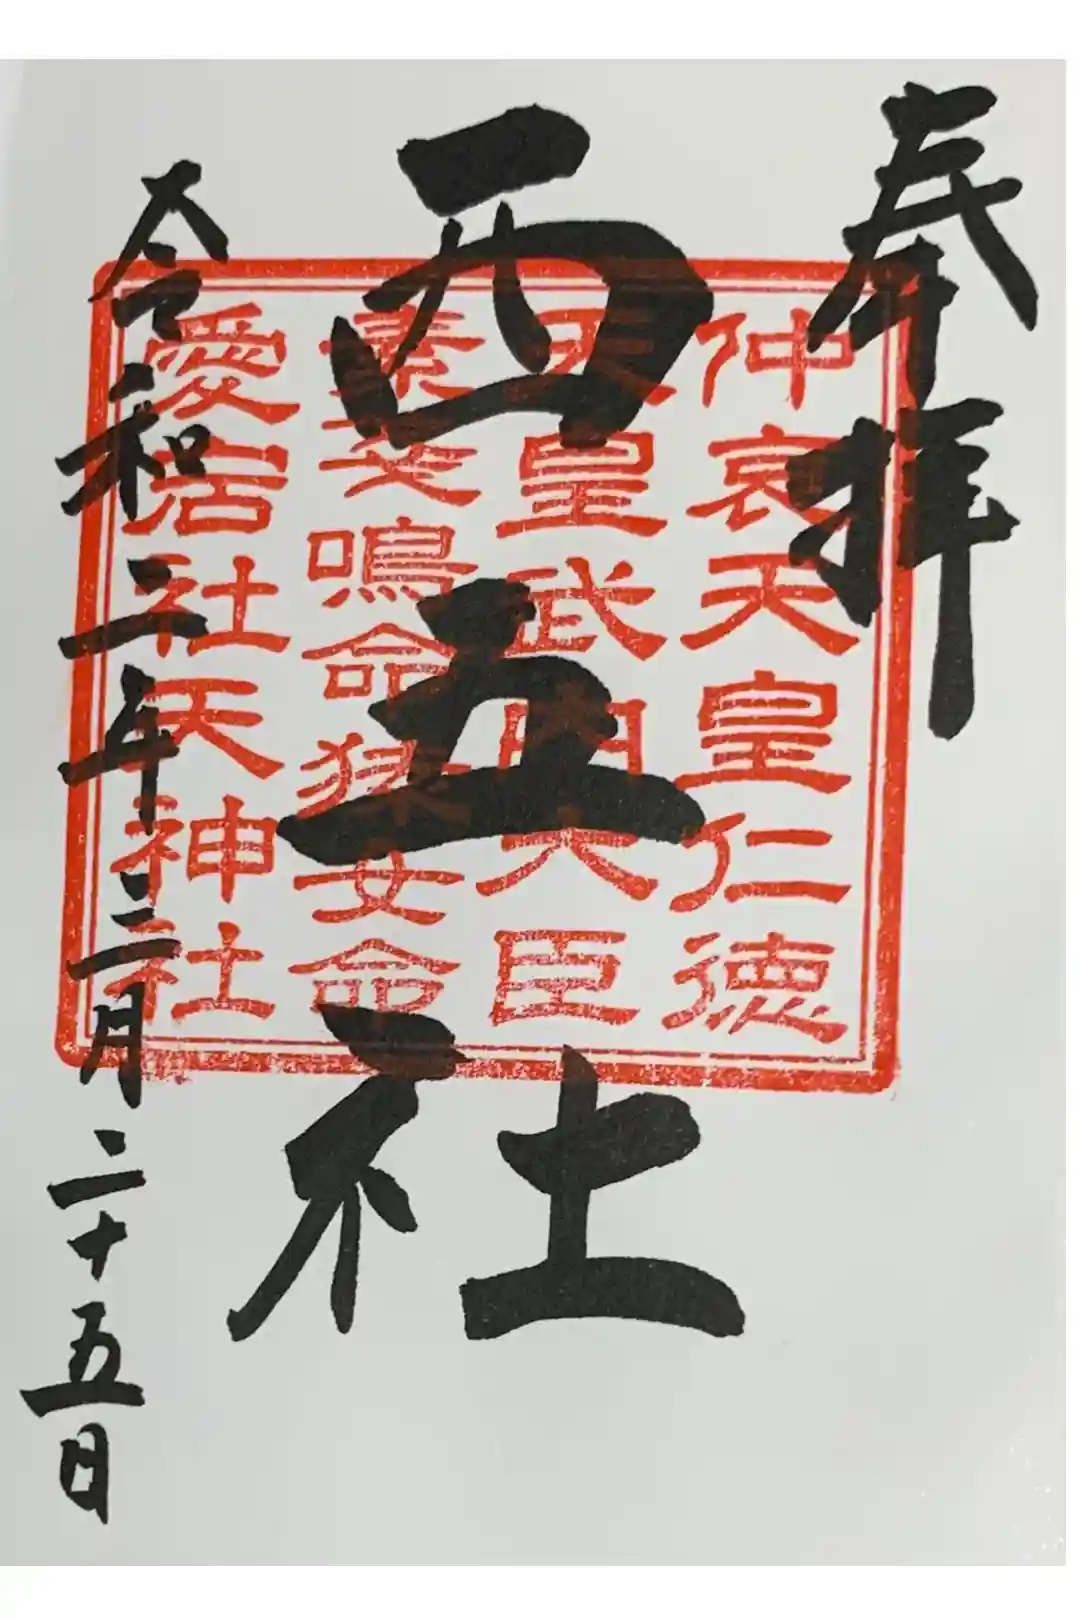 奉拝
西五社
令和三年三月二十五日
仲哀天皇仁徳
天皇武内大臣
素戔鳴命猿女命
愛宕社天神社